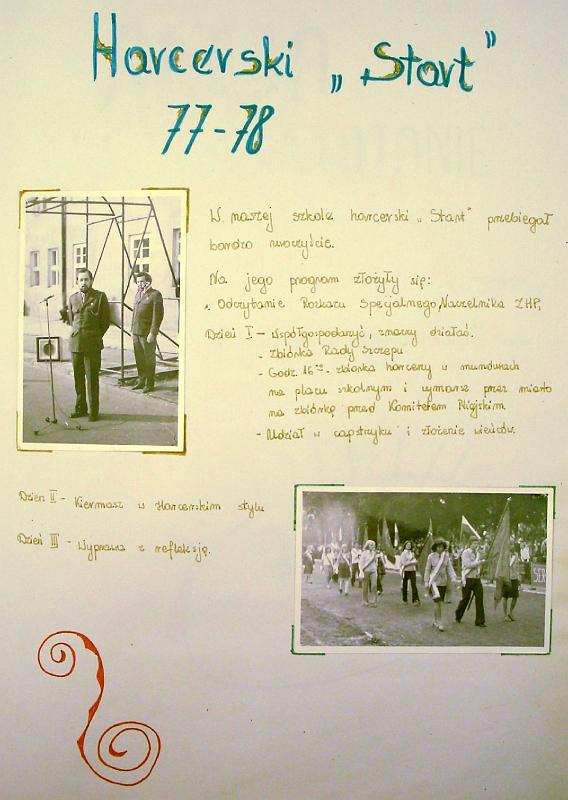 Harcerski „Start”
77-78
W naszej szkole harcerski „Start” przebiegał
bardzo uroczyście.
Na jego program złożyły się:
. Odczytanie Rozkazu Specjalnego Naczelnika ZHP,
Dzień I - Współgospodarzyć, znaczy działać.
- zbiórka Rady Szczepu
- Godz. 16 - zbiórka harcerzy w mundurach
na placu szkolnym i wymarsz przez miasto
na zbiórkę przed Komitetem Miejskim
- Udział w capstrzyku i złożenie wieńców.
Dzień II - Kiermasz w Harcerskim stylu
Dzień III - Wyprawa z refleksją.